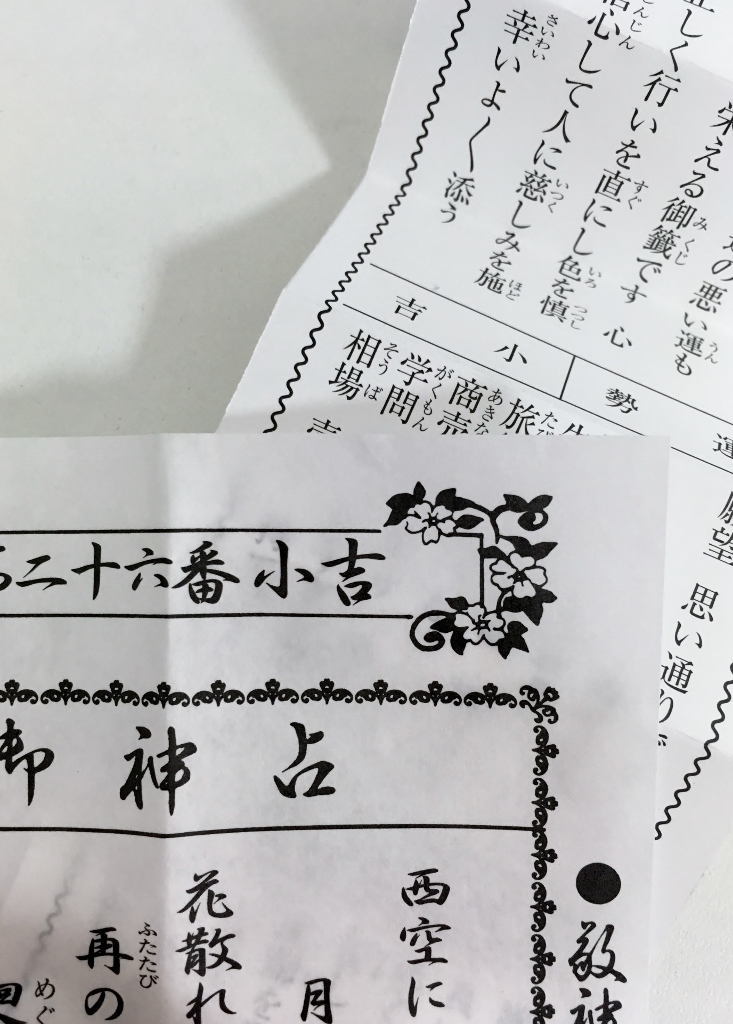 の悪い運も
栄える御籤です
正しく行いを直にし色を慎
心して人に慈しみを施
幸いよく添う
運勢
小吉
願望 思い通り
旅
商売
学問
相場
二十六番 小吉
御神占
●敬神
西空に
月
花散れ
再の